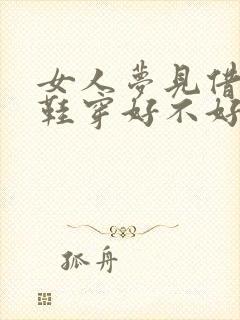 女人夢見借
鞋穿好不好
孤舟